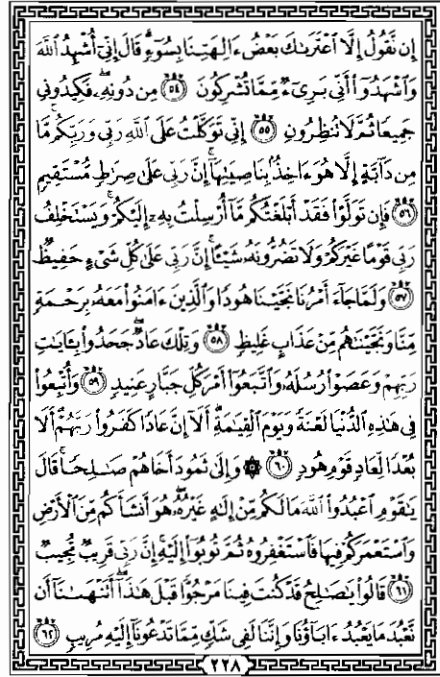 إِن نَّقُولُ إِلَّا ٱعْتَرَىٰكَ بَعْضُ ءَالِهَتِنَا بِسُوٓءٍ ۗ قَالَ إِنِّىٓ أُشْهِدُ ٱللَّهَ
وَٱشْهَدُوٓا۟ أَنِّى بَرِىٓءٌ مِّمَّا تُشْرِكُونَ ﴿٥٤﴾ مِن دُونِهِۦ ۖ فَكِيدُونِى
جَمِيعًا ثُمَّ لَا تُنظِرُونِ ﴿٥٥﴾ إِنِّى تَوَكَّلْتُ عَلَى ٱللَّهِ رَبِّى وَرَبِّكُم ۚ مَّا
مِن دَآبَّةٍ إِلَّا هُوَ ءَاخِذٌۢ بِنَاصِيَتِهَآ ۚ إِنَّ رَبِّى عَلَىٰ صِرَٰطٍ مُّسْتَقِيمٍ
﴿٥٦﴾ فَإِن تَوَلَّوْا۟ فَقَدْ أَبْلَغْتُكُم مَّآ أُرْسِلْتُ بِهِۦٓ إِلَيْكُمْ ۚ وَيَسْتَخْلِفُ
رَبِّى قَوْمًا غَيْرَكُمْ وَلَا تَضُرُّونَهُۥ شَيْـًٔا ۚ إِنَّ رَبِّى عَلَىٰ كُلِّ شَىْءٍ حَفِيظٌ
﴿٥٧﴾ وَلَمَّا جَآءَ أَمْرُنَا نَجَّيْنَا هُودًا وَٱلَّذِينَ ءَامَنُوا۟ مَعَهُۥ بِرَحْمَةٍ
مِّنَّا وَنَجَّيْنَٰهُم مِّنْ عَذَابٍ غَلِيظٍ ﴿٥٨﴾ وَتِلْكَ عَادٌ ۖ جَحَدُوا۟ بِـَٔايَٰتِ
رَبِّهِمْ وَعَصَوْا۟ رُسُلَهُۥ وَٱتَّبَعُوٓا۟ أَمْرَ كُلِّ جَبَّارٍ عَنِيدٍ ﴿٥٩﴾ وَأُتْبِعُوا۟
فِى هَٰذِهِ ٱلدُّنْيَا لَعْنَةً وَيَوْمَ ٱلْقِيَٰمَةِ ۗ أَلَآ إِنَّ عَادًا كَفَرُوا۟ رَبَّهُمْ ۗ أَلَا
بُعْدًا لِّعَادٍ قَوْمِ هُودٍ ﴿٦٠﴾ ۞ وَإِلَىٰ ثَمُودَ أَخَاهُمْ صَٰلِحًا ۚ قَالَ
يَٰقَوْمِ ٱعْبُدُوا۟ ٱللَّهَ مَا لَكُم مِّنْ إِلَٰهٍ غَيْرُهُۥ ۖ هُوَ أَنشَأَكُم مِّنَ ٱلْأَرْضِ
وَٱسْتَعْمَرَكُمْ فِيهَا فَٱسْتَغْفِرُوهُ ثُمَّ تُوبُوٓا۟ إِلَيْهِ ۚ إِنَّ رَبِّى قَرِيبٌ مُّجِيبٌ
﴿٦١﴾ قَالُوا۟ يَٰصَٰلِحُ قَدْ كُنتَ فِينَا مَرْجُوًّا قَبْلَ هَٰذَآ ۖ أَتَنْهَىٰنَآ أَن
نَّعْبُدَ مَا يَعْبُدُ ءَابَآؤُنَا وَإِنَّنَا لَفِى شَكٍّ مِّمَّا تَدْعُونَآ إِلَيْهِ مُرِيبٍ ﴿٦٢﴾
٢٢٨